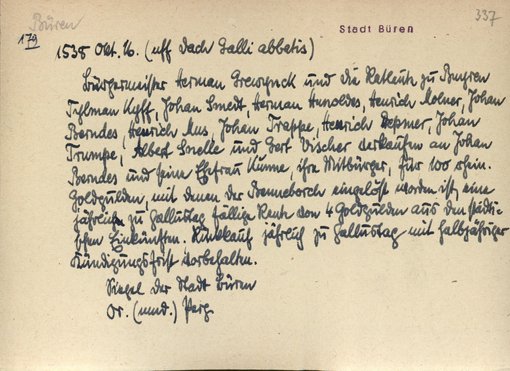 Büren
337
Stadt Büren
179
1538 Okt. 16. (uff dach Galli abbatis)
Bürgermeister Herman Greveynck und die Ratleute zu Buyren
Tylman Kyff, Johan Smedt, Herman Arnoldes, Henrich Molner, Johan
Berndes, Henrich Mus, Johan Trappe, Henrich Depmer, Johan
Trumpe, Albert Snelle und Gert Vischer verkaufen an Johan
Berndes und seine Ehefrau Kunne, ihre Mitbürger, für 100 rhein.
Goldgulden, mit denen der Benneborch eingelöst worden ist, eine
jährliche zu Gallustag fällige Rente von 4 Goldgulden aus den städti-
schen Einkünften. Rückkauf jährlich zu Gallustag mit halbjähriger
Kündigungsfrist vorbehalten.
Siegel der Stadt Büren
Or. (nnd.) Perg.